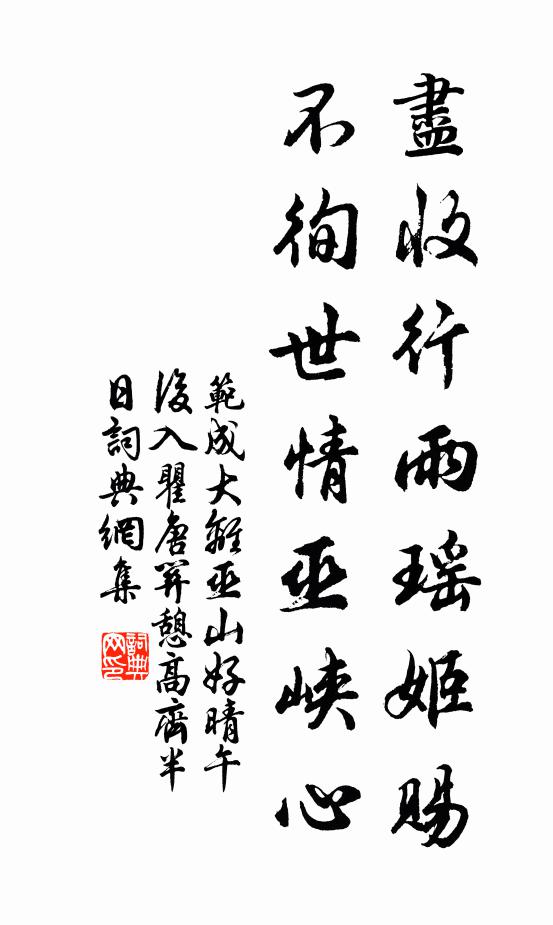 盡收行雨瑶姬賜
不徇世情巫峽心
範成大離巫山好晴午
後入瞿唐関憩高齋半
日詞典網集
詞典网印